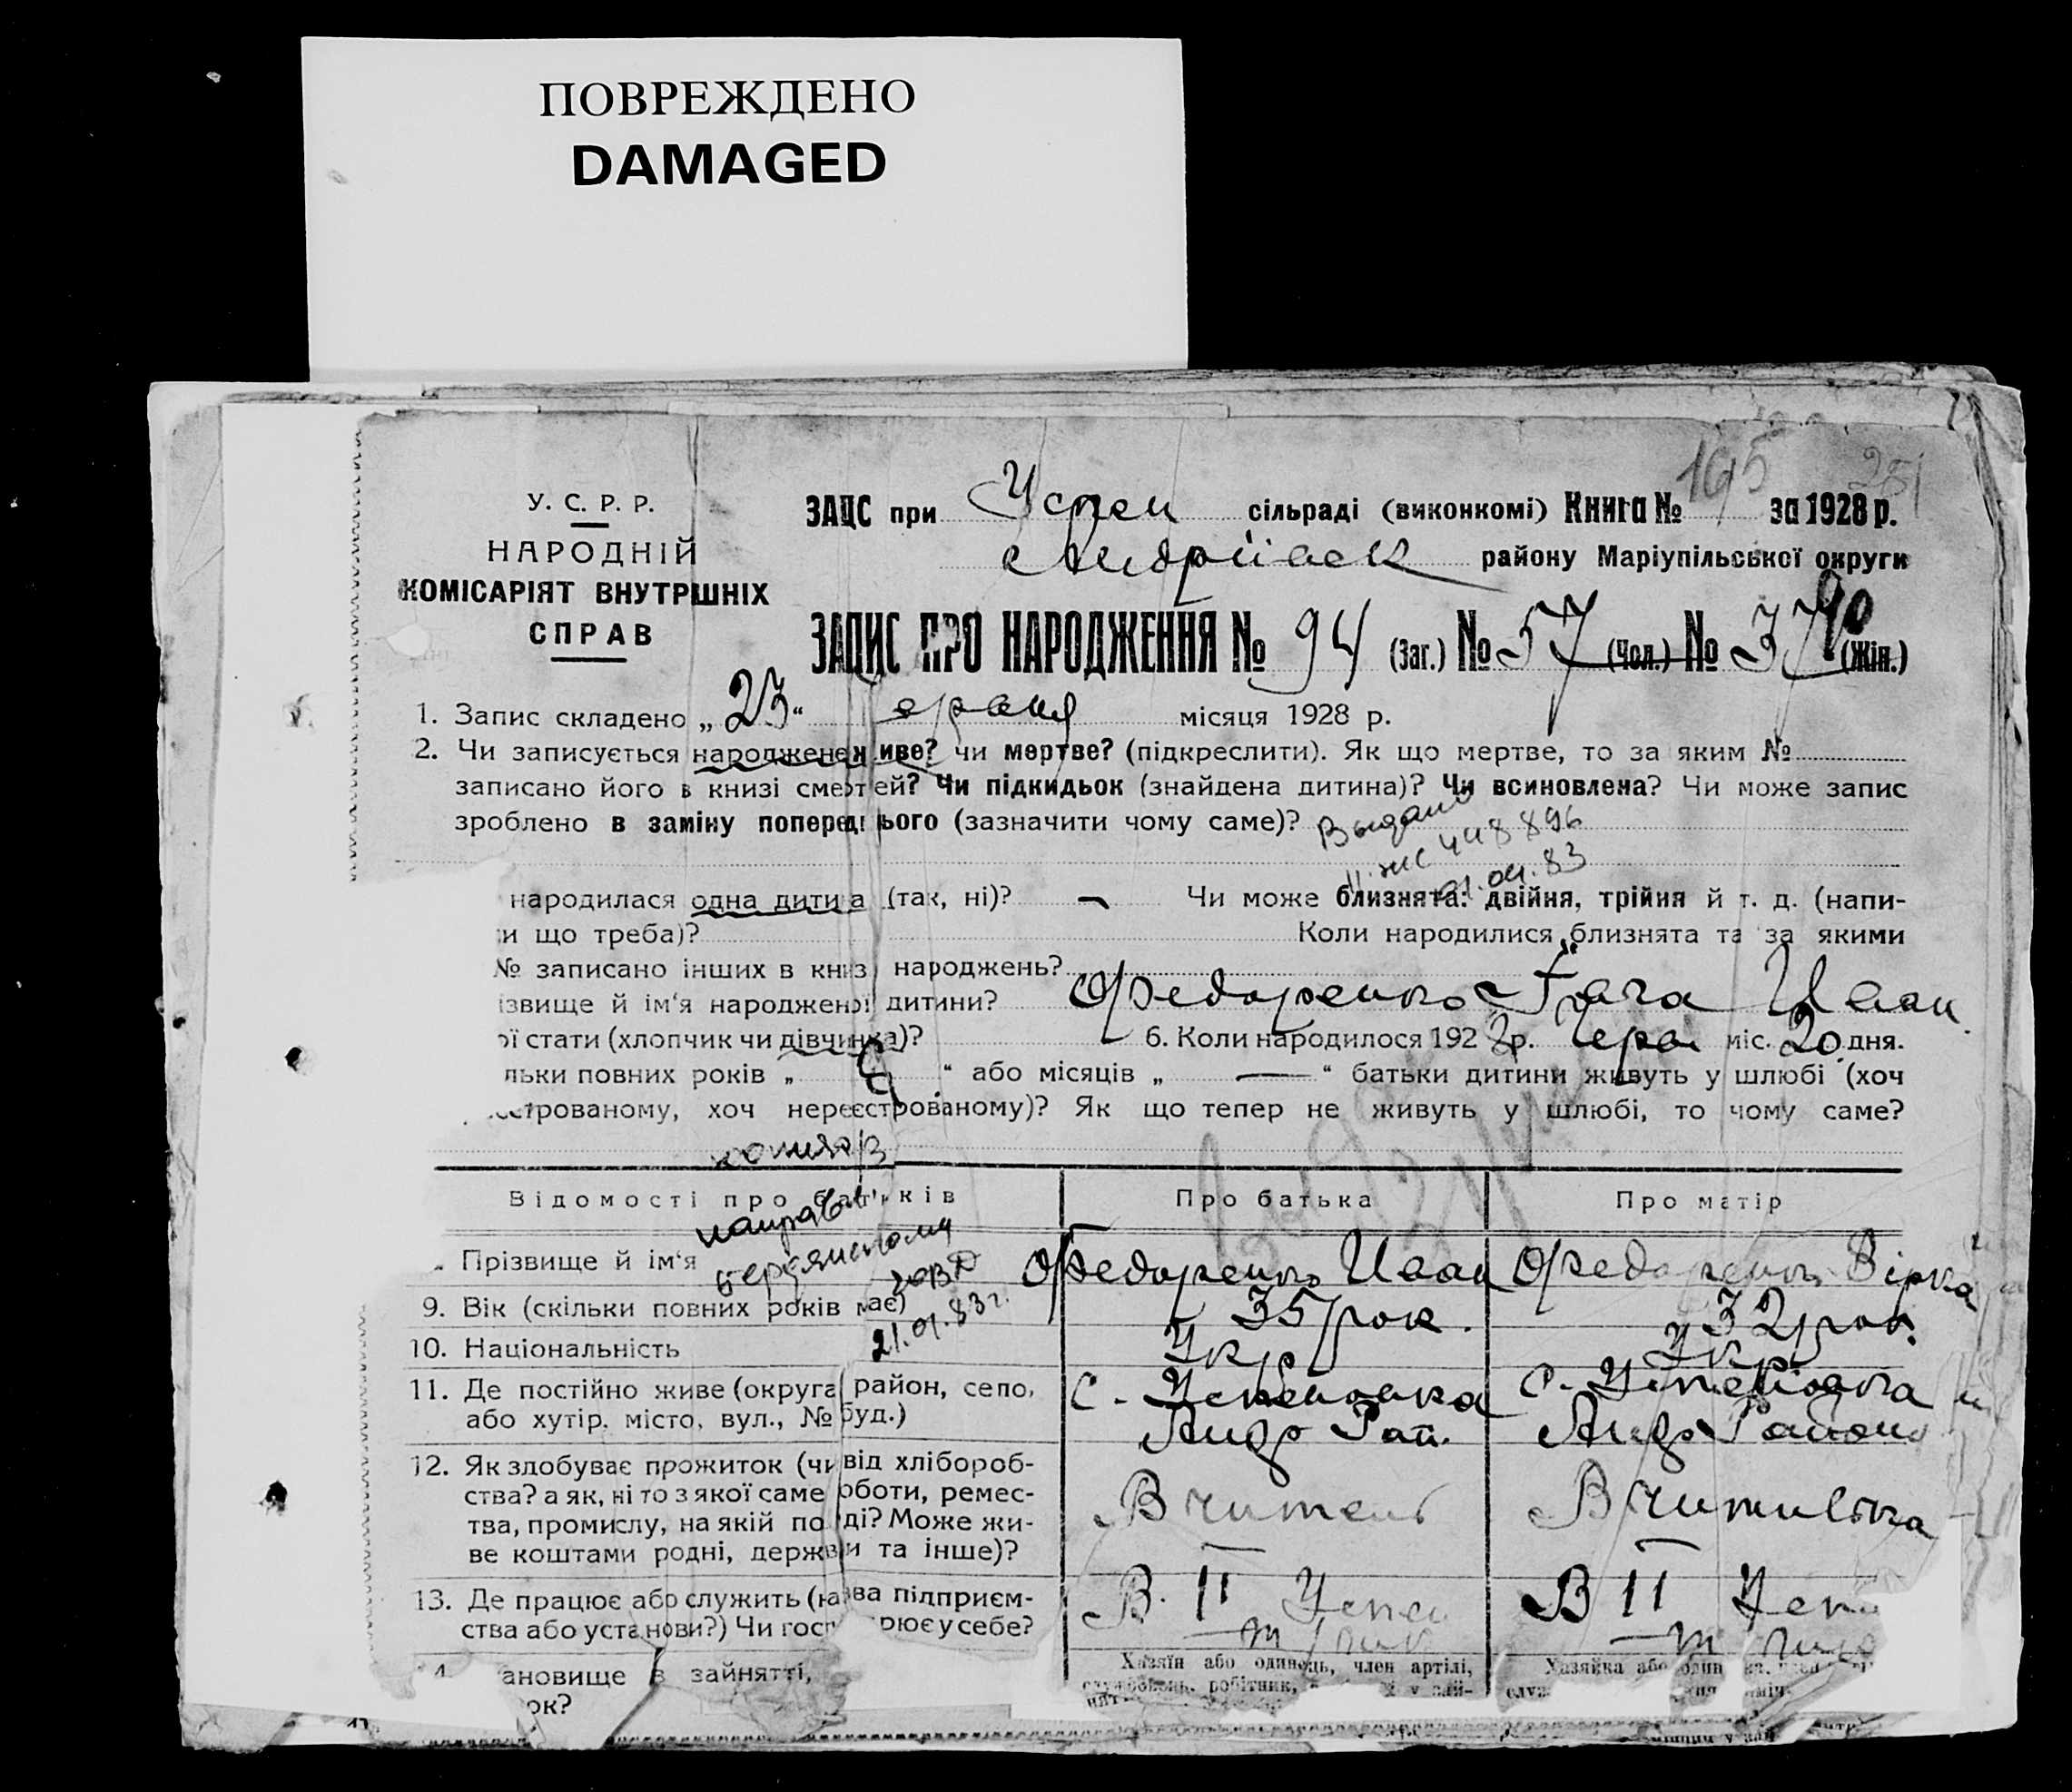 ПОВРЕЖДЕНО
DAMAGED
195 251
У. С. Р. Р.
НАРОДНІЙ
КОМІСАРІЯТ ВНУТРІШНІХ
СПРАВ
ЗАЦС при Успен сільраді (виконкомі) Книга № за 1928 р.
Андріївск району Маріупільської округи
ЗАПИС ПРО НАРОДЖЕННЯ № 94 (Заг.) № 57 (Чол.) № 37 (Жін.)
1. Запис складено „ 23 “ місяця 1928 р.
2. Чи записується народжене живе? чи мертве? (підкреслити). Як що мертве, то за яким №
записано його в книзі смертей? Чи підкидьок (знайдена дитина)? Чи всиновлена? Чи може запис
зроблено в заміну попереднього (зазначити чому саме)? Выдано
448896
21.04.83
народилася одна дитина (так, ні)? — Чи може близнята: двійня, трійня й т. д. (напи-
и що треба)? Коли народилися близнята та за якими
№ записано інших в книзі народжень?
ізвище й ім‘я народженої дитини? Федоренко Иван
ої стати (хлопчик чи дівчинка)? 6. Коли народилося 1928 р. черв міс. 20 дня.
льки повних років „ 9 “ або місяців „ — “ батьки дитини живуть у шлюбі (хоч
еєстрованому, хоч нереєстрованому)? Як що тепер не живуть у шлюбі, то чому саме?
копия в
направл
Бердянскому
ГОВД
21.01.83г.
Відомості про батьків Про батька Про матір
Прізвище й ім‘я Федоренко Иван Федоренко Вірка
9. Вік (скільки повних років має) 35 рок. 32 рок.
10. Національність Укр Укр
11. Де постійно живе (округа, район, село, с. Успеновка с. Успенівка
або хутір, місто, вул., № буд.) Андр Рай. Андр Району
12. Як здобуває прожиток (чи від хлібороб-
ства? а як, ні то з якої саме роботи, ремес- Вчитель Вчителька
тва, промислу, на якій посаді? Може жи-
ве коштами родні, держави та інше)?
13. Де працює або служить (назва підприєм- В 11 Успен В 11 Успе
ства або установи?) Чи господарює у себе?
ановище в зайнятті, Хазяїн або одинець, член артілі,
ок? службовець, робітник,